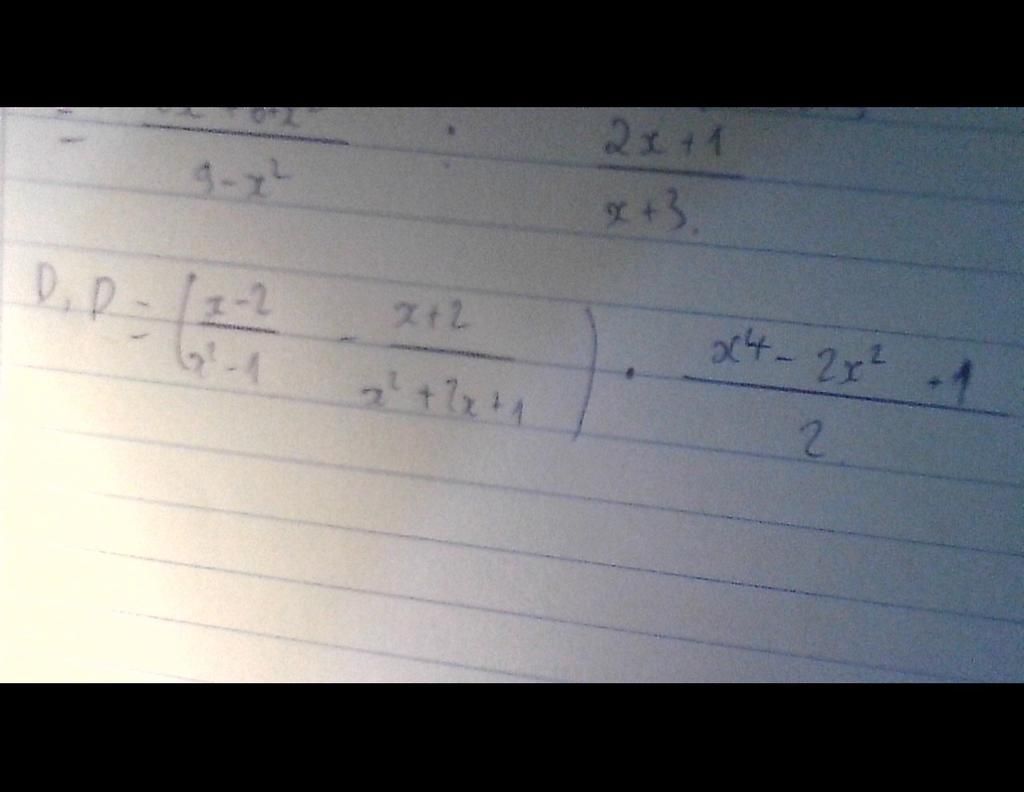 = 9-x² : 2x+1 / x+3
D, D = (x-2 / x²-1 - x+2 / x²+2x+1) . x⁴ - 2x² +1 / 2